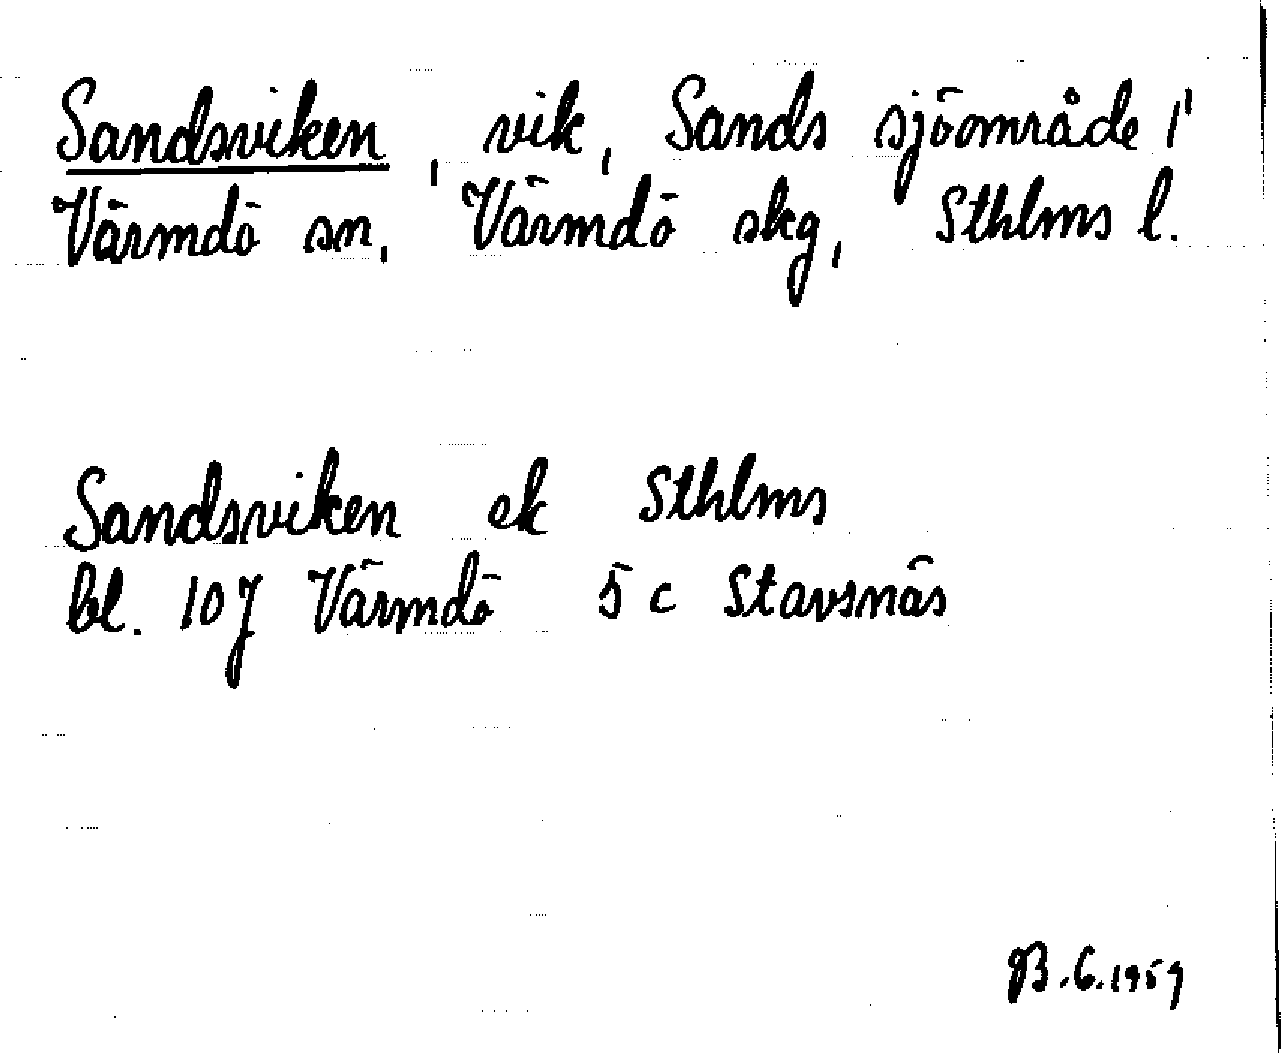 Sandsviken, vik, Sands sjöområde i
Värmdö sn, Värmdö skg, Sthlms l.
Sandsviken ek Sthlms
bl. 10J Värmdö 5c Stavsnäs
B.G. 1959